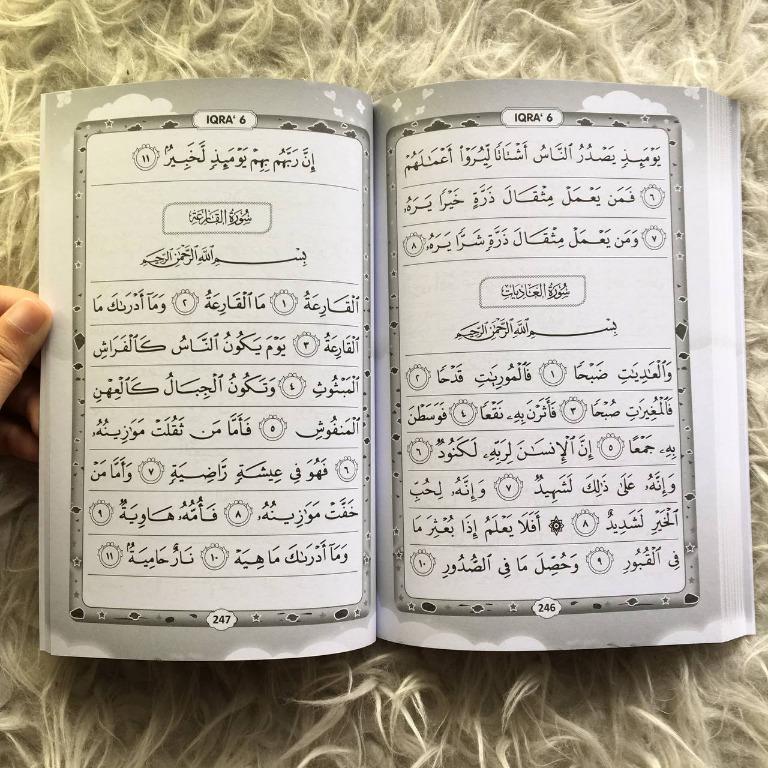 IQRA' 6
يَوْمَئِذٍ يَصْدُرُ ٱلنَّاسُ أَشْتَاتًا لِّيُرَوْا۟ أَعْمَـٰلَهُمْ
٦ فَمَن يَعْمَلْ مِثْقَالَ ذَرَّةٍ خَيْرًا يَرَهُۥ
٧ وَمَن يَعْمَلْ مِثْقَالَ ذَرَّةٍ شَرًّا يَرَهُۥ ٨
سُورَةُ العَادِيَاتِ
بِسْمِ ٱللَّهِ ٱلرَّحْمَـٰنِ ٱلرَّحِيمِ
وَٱلْعَـٰدِيَـٰتِ ضَبْحًا ١ فَٱلْمُورِيَـٰتِ قَدْحًا ٢
فَٱلْمُغِيرَٰتِ صُبْحًا ٣ فَأَثَرْنَ بِهِۦ نَقْعًا ٤ فَوَسَطْنَ
بِهِۦ جَمْعًا ٥ إِنَّ ٱلْإِنسَـٰنَ لِرَبِّهِۦ لَكَنُودٌ ٦
وَإِنَّهُۥ عَلَىٰ ذَٰلِكَ لَشَهِيدٌ ٧ وَإِنَّهُۥ لِحُبِّ
ٱلْخَيْرِ لَشَدِيدٌ ٨ ۞ أَفَلَا يَعْلَمُ إِذَا بُعْثِرَ مَا
فِى ٱلْقُبُورِ ٩ وَحُصِّلَ مَا فِى ٱلصُّدُورِ ١٠
246
IQRA' 6
إِنَّ رَبَّهُم بِهِمْ يَوْمَئِذٍ لَّخَبِيرٌۢ ١١
سُورَةُ القَارِعَة
بِسْمِ ٱللَّهِ ٱلرَّحْمَـٰنِ ٱلرَّحِيمِ
ٱلْقَارِعَةُ ١ مَا ٱلْقَارِعَةُ ٢ وَمَآ أَدْرَىٰكَ مَا
ٱلْقَارِعَةُ ٣ يَوْمَ يَكُونُ ٱلنَّاسُ كَٱلْفَرَاشِ
ٱلْمَبْثُوثِ ٤ وَتَكُونُ ٱلْجِبَالُ كَٱلْعِهْنِ
ٱلْمَنفُوشِ ٥ فَأَمَّا مَن ثَقُلَتْ مَوَٰزِينُهُۥ
٦ فَهُوَ فِى عِيشَةٍ رَّاضِيَةٍ ٧ وَأَمَّا مَنْ
خَفَّتْ مَوَٰزِينُهُۥ ٨ فَأُمُّهُۥ هَاوِيَةٌ ٩
وَمَآ أَدْرَىٰكَ مَا هِيَهْ ١٠ نَارٌ حَامِيَةٌۢ ١١
247